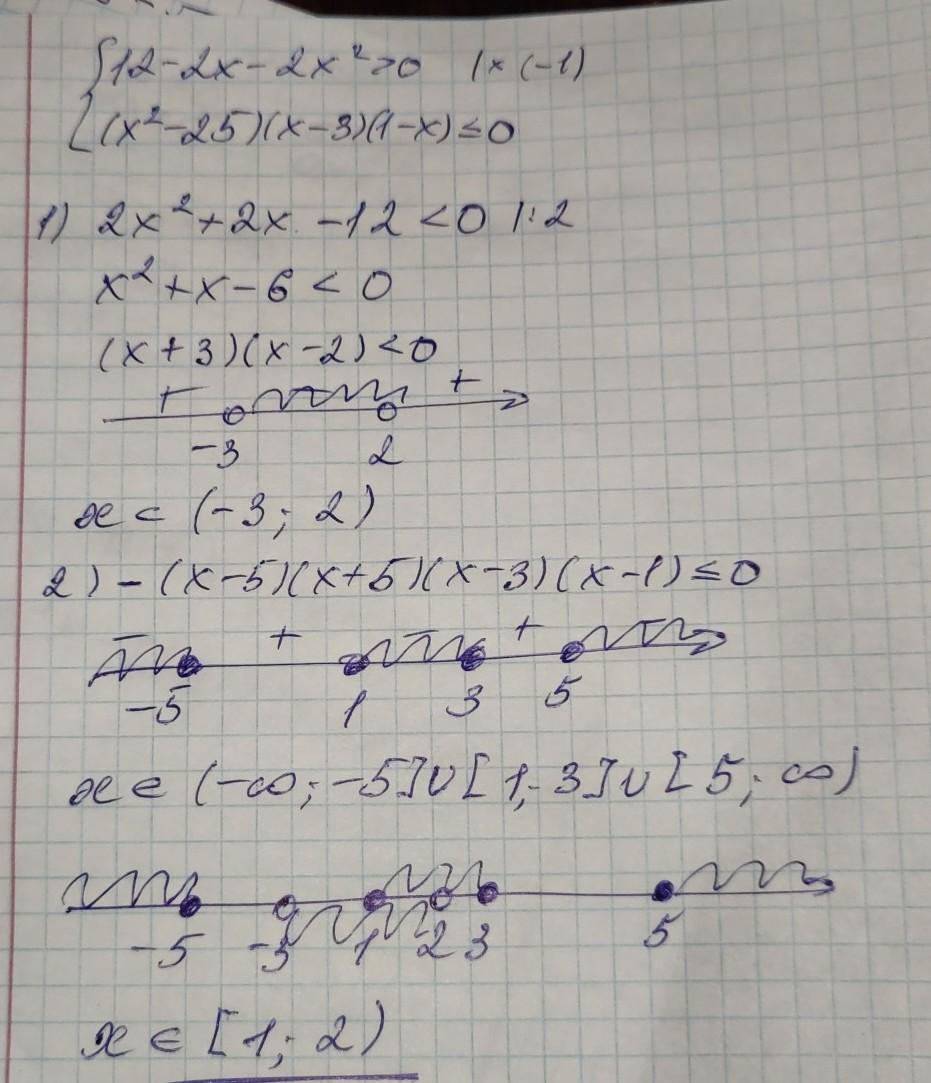 {12-2x-2x²>0 |×(-1)
(x²-25)(x-3)(1-x)≤0
1) 2x²+2x-12<0 |:2
x²+x-6<0
(x+3)(x-2)<0
+ - +
-3 2
x∈(-3; 2)
2) -(x-5)(x+5)(x-3)(x-1)≤0
- + - + -
-5 1 3 5
x∈(-∞; -5]∪[1; 3]∪[5; ∞)
-5 -3 1 2 3 5
x∈[1; 2)